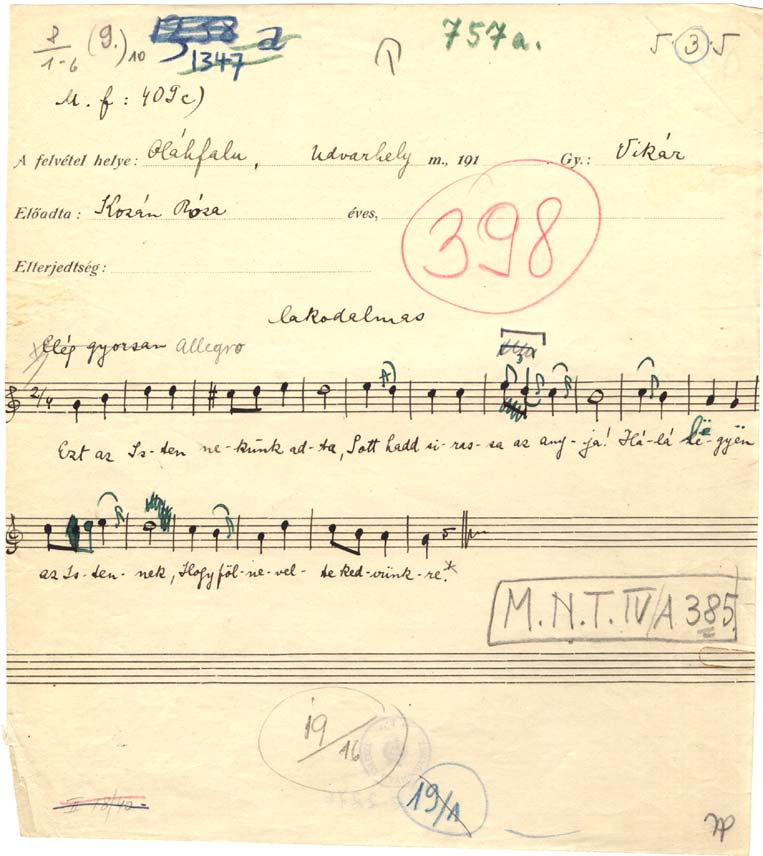 8/1-6 (9.)10 1238 a 757a. 5 (3) 5
1347
M. f: 409c)
A felvétel helye: Oláhfalu, Udvarhely m., 191 . Gy.: Vikár
Előadta: Kozán Rózsa éves,
398
Elterjedtség:
lakodalmas
Elég gyorsan Allegro
2/4
Ezt az Is-ten ne-künk ad-ta, Sott hadd si-ras-sa az any-ja! Há-lá lë-gyën
az Is-ten-nek, Hogy föl-ne-vel-te ked-vünk-re.*
M.N.T. IV/A 385.
19/16
19/1
II 18/42